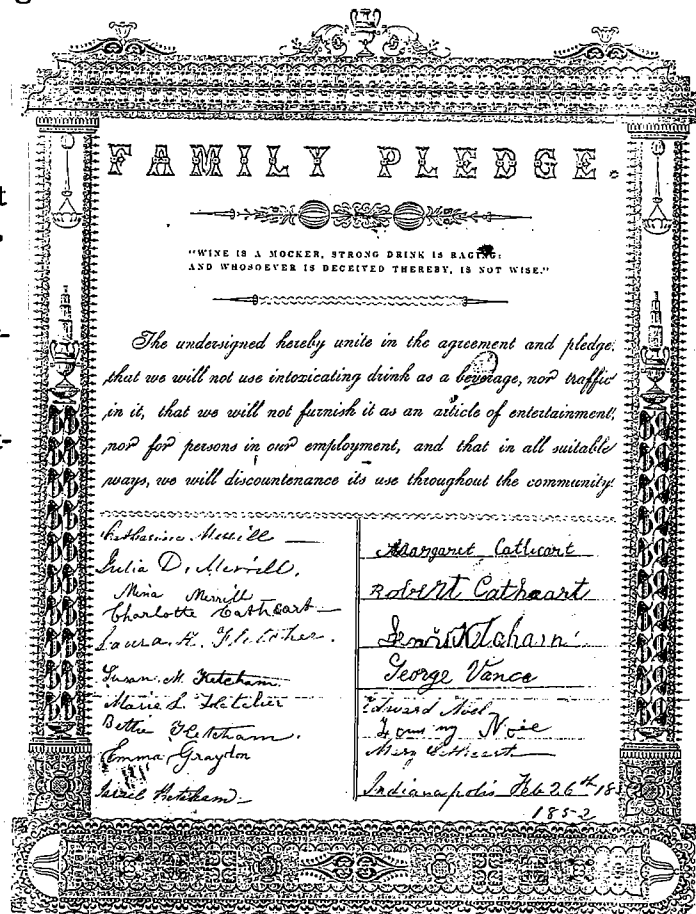 FAMILY PLEDGE.
"WINE IS A MOCKER, STRONG DRINK IS RAGING:
AND WHOSOEVER IS DECEIVED THEREBY, IS NOT WISE."
The undersigned hereby unite in the agreement and pledge,
that we will not use intoxicating drink as a beverage, nor traffic
in it, that we will not furnish it as an article of entertainment,
nor for persons in our employment, and that in all suitable
ways, we will discountenance its use throughout the community.
Catharine Merrill
Julia D. Merrill.
Mina Merrill
Charlotte Cathcart
Laura K. Fletcher.
Susan M. Ketcham.
Maria L. Fletcher
Bettie Ketcham.
Emma Graydon
Ketcham
Margaret Cathcart
Robert Cathcart
Ketcham
George Vance
Edward
Mary Cathcart
Indianapolis Feb 26th 185
1852